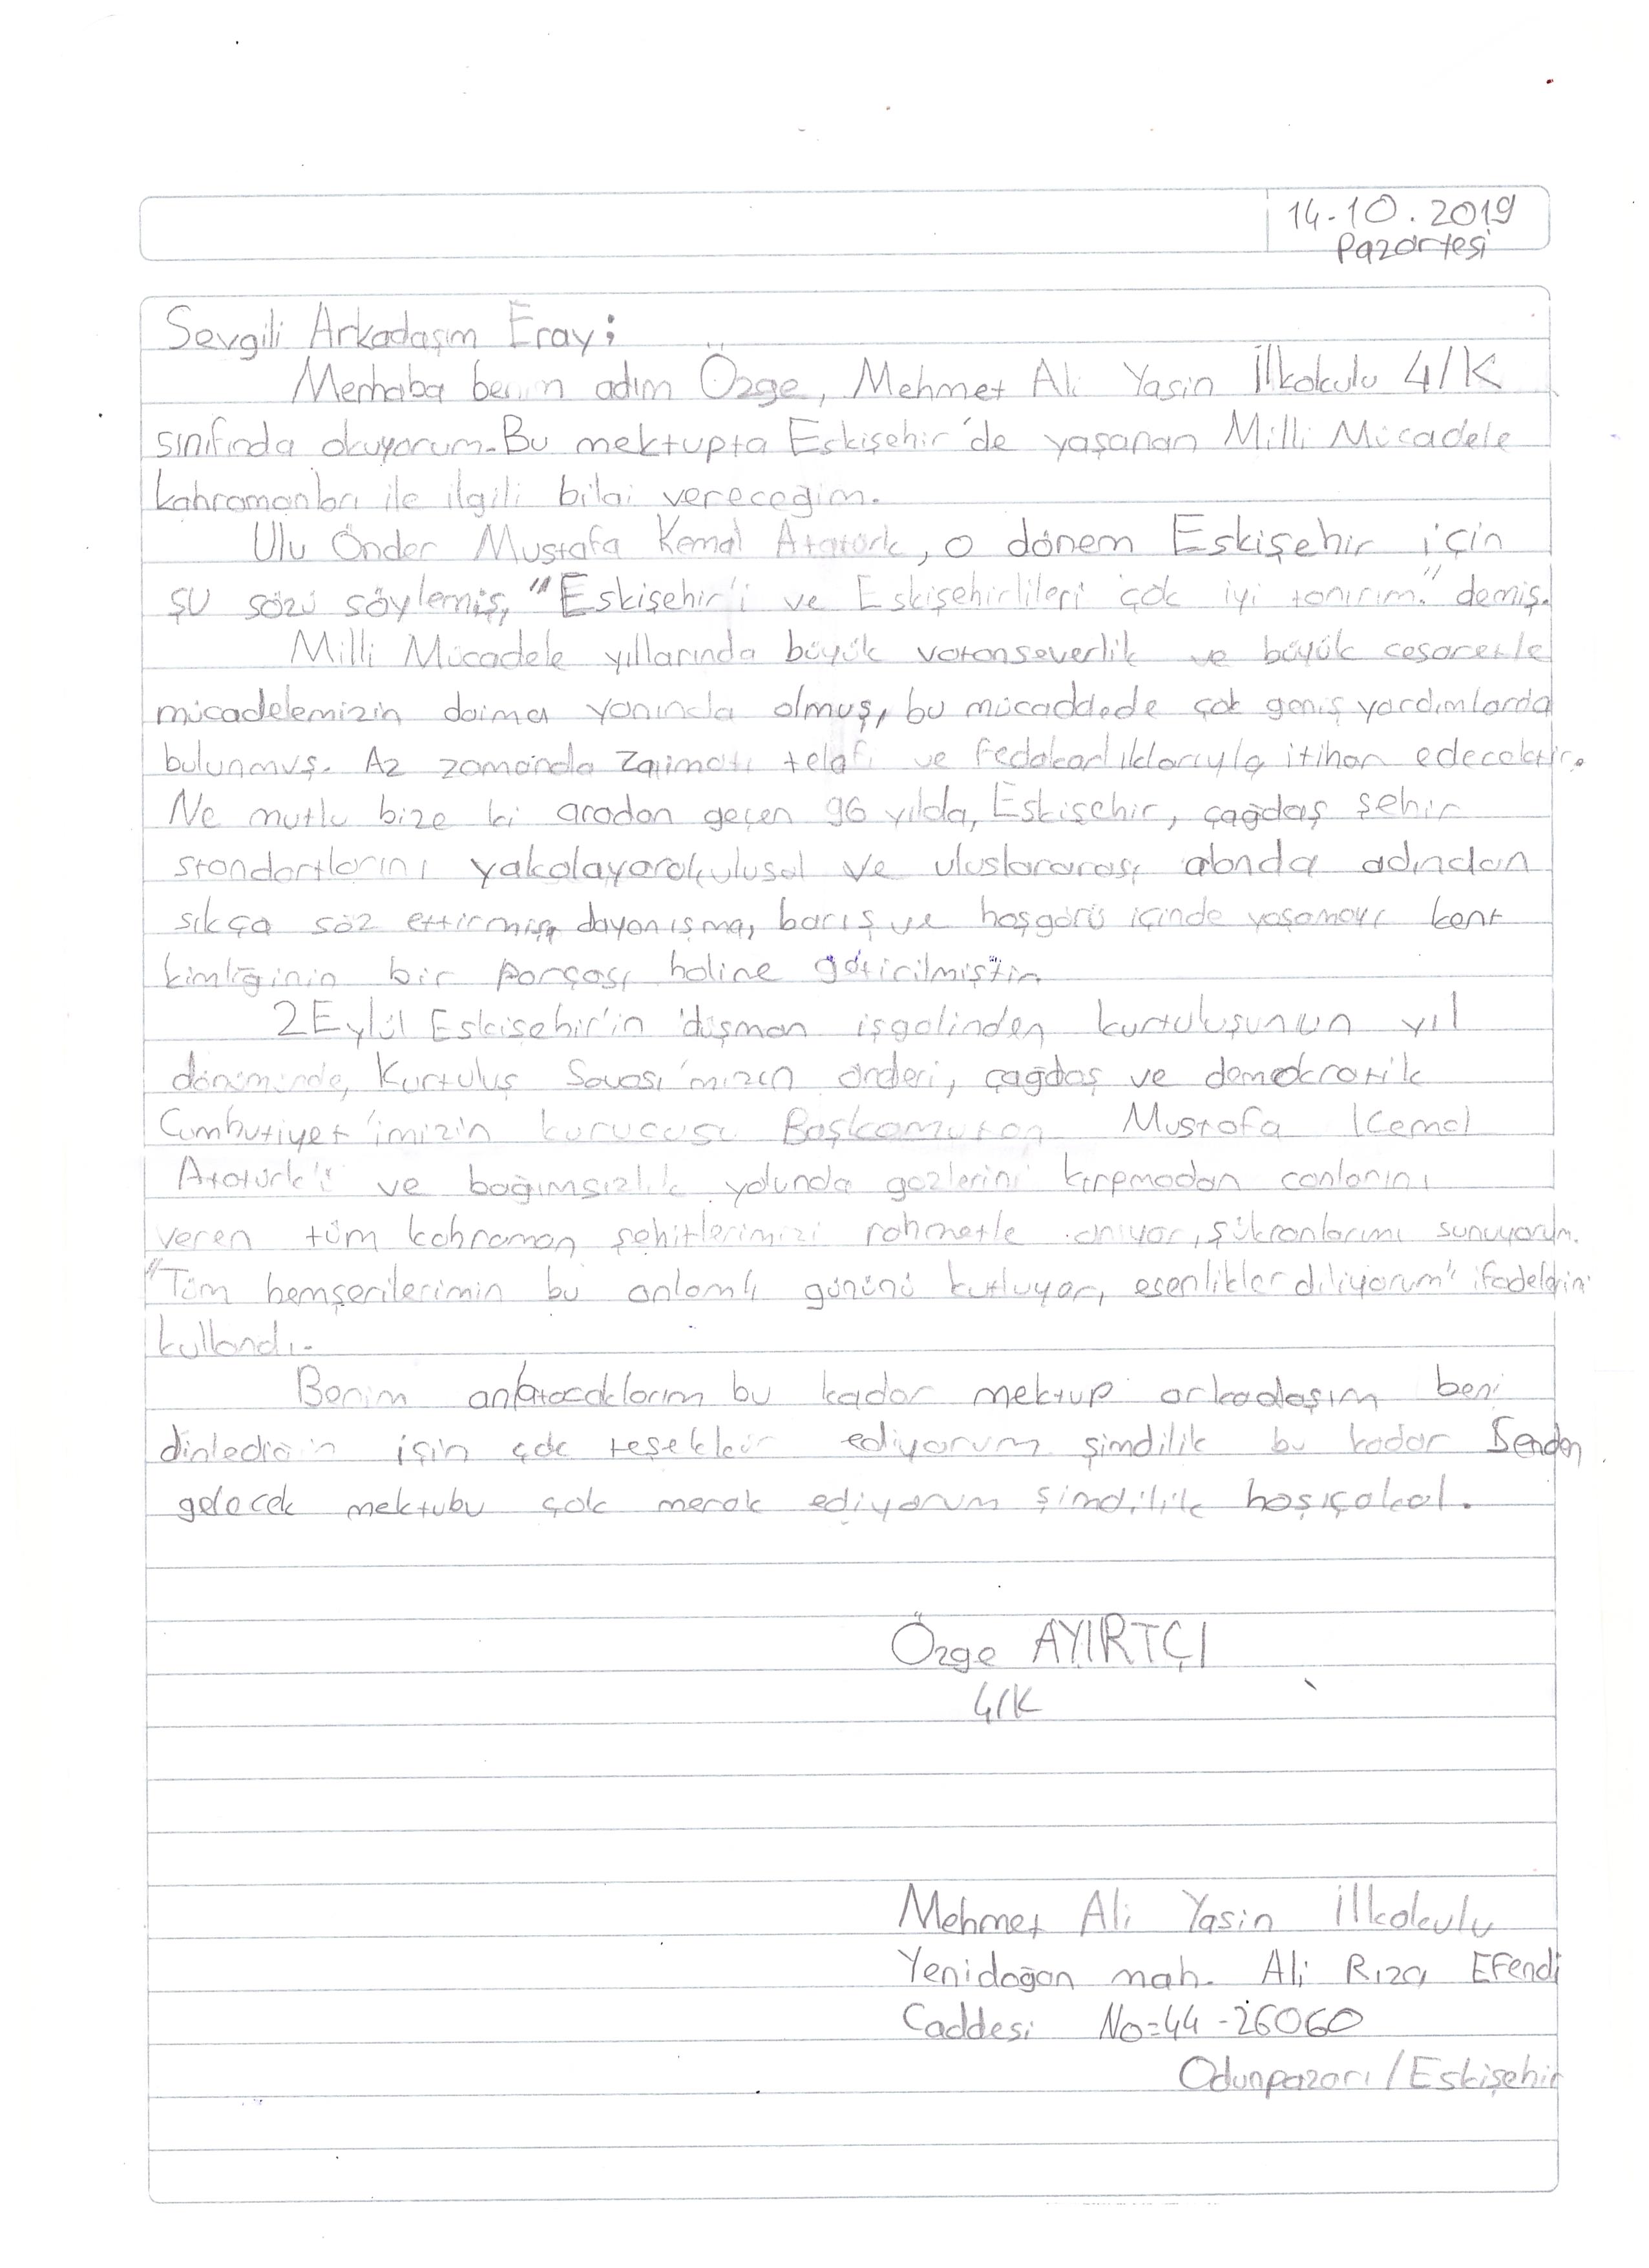 14-10.2019
Pazartesi
Sevgili Arkadaşım Eray;
Merhaba benim adım Özge, Mehmet Ali Yasin İlkokulu 4/K
sınıfında okuyorum. Bu mektupta Eskişehir'de yaşanan Milli Mücadele
kahramanları ile ilgili bilgi vereceğim.
Ulu Önder Mustafa Kemal Atatürk, o dönem Eskişehir için
şu sözü söylemiş, "Eskişehir'i ve Eskişehirlileri çok iyi tanırım." demiş.
Milli Mücadele yıllarında büyük vatanseverlik ve büyük cesaretle
mücadelemizin daima yanında olmuş, bu mücaddede çok geniş yardımlarda
bulunmuş. Az zamanda zaimatı telafi ve fedakarlıklarıyla itihan edecektir.
Ne mutlu bize ki aradan geçen 96 yılda, Eskişehir, çağdaş şehir
standartlarını yakalayarak, ulusal ve uluslararası alanda adından
sıkça söz ettirmiş, dayanışma, barış ve hoşgörü içinde yaşamayı kent
kimliğinin bir parçası haline götirilmiştir.
2 Eylül Eskişehir'in düşman işgalinden kurtuluşunun yıl
dönümünde, Kurtuluş Savaşı'mızın önderi, çağdaş ve demokratik
Cumhuriyet'imizin kurucusu Başkomutan Mustafa Kemal
Atatürk'ü ve bağımsızlık yolunda gözlerini kırpmadan canlarını
veren tüm kahraman şehitlerimizi rahmetle anıyor, şükranlarımı sunuyorum.
"Tüm hemşerilerimin bu anlamlı gününü kutluyor, esenlikler diliyorum" ifadelerini
kullandı.
Benim anlatacaklarım bu kadar mektup arkadaşım beni
dinlediğin için çok teşekkür ediyorum şimdilik bu kadar Senden
gelecek mektubu çok merak ediyorum şimdilik hoşçakal.
Özge AYIRTÇI
4/K
Mehmet Ali Yasin İlkokulu
Yenidoğan mah. Ali Rıza Efendi
Caddesi No=44-26060
Odunpazarı/Eskişehir